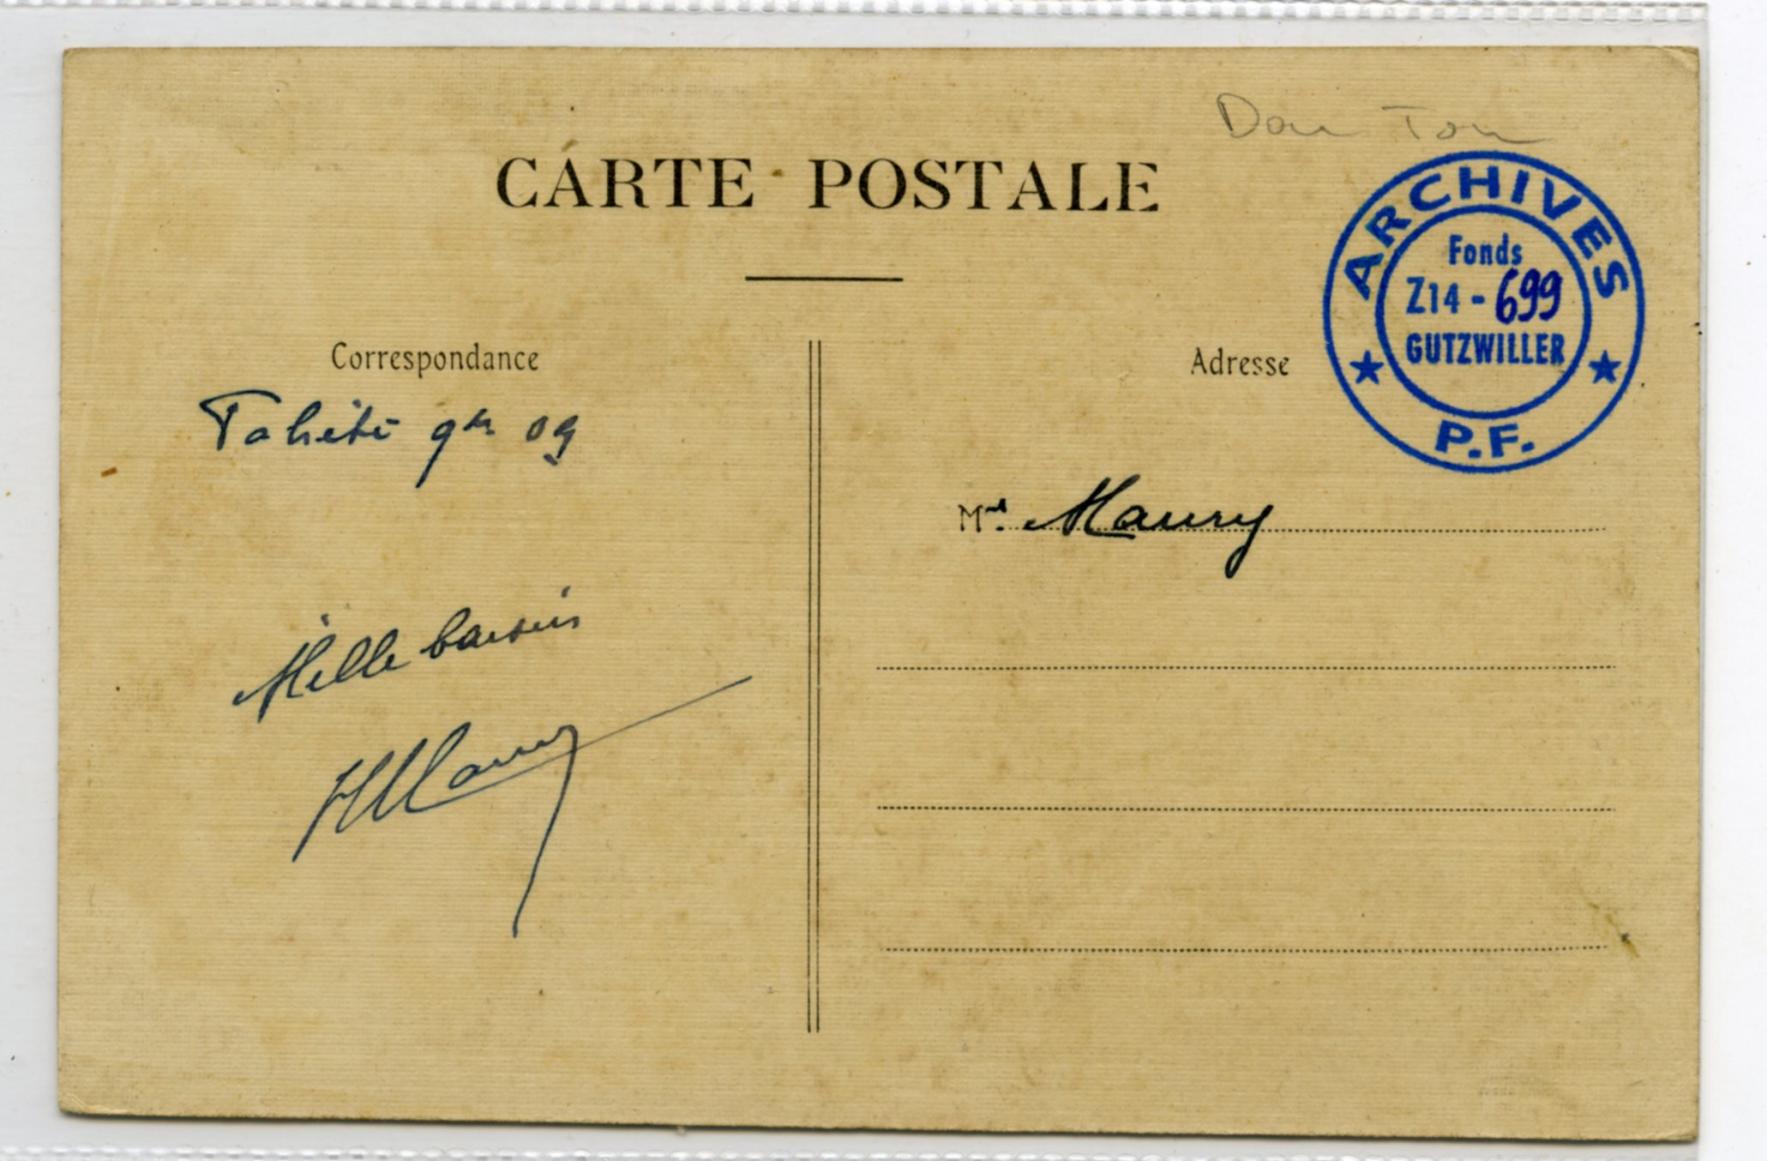 CARTE POSTALE
ARCHIVES
Fonds
Z14 - 699
GUTZWILLER
P.F.
Correspondance
Tahiti 9bre 09
Mille baisers
HMaury
Adresse
Md. Maury